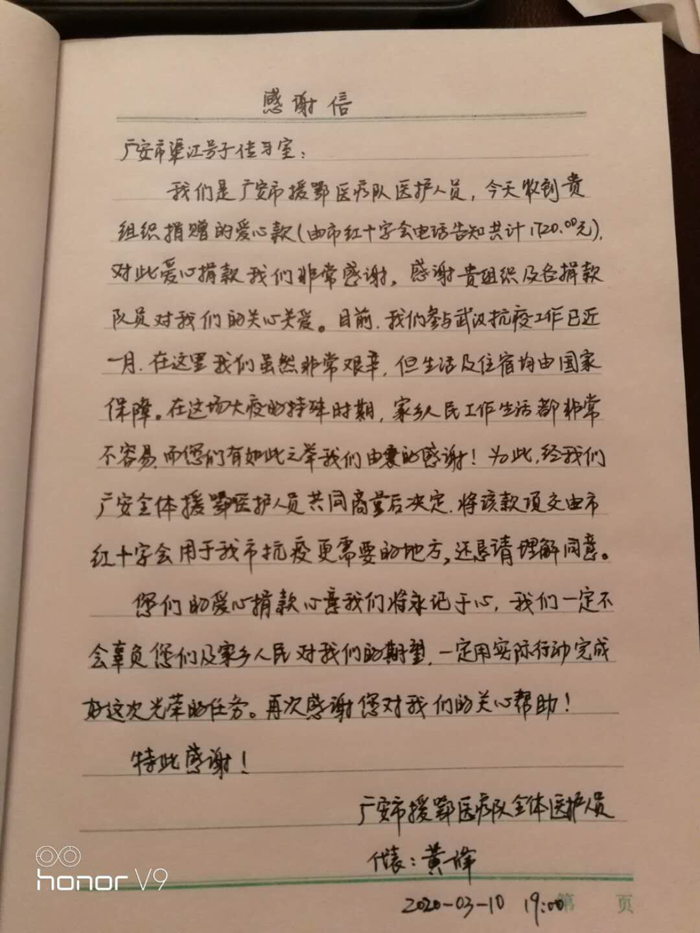 感谢信
广安市渠江号子传习室：
我们是广安市援鄂医疗队医护人员，今天收到贵
组织捐赠的爱心款(由市红十字会电话告知共计1720.00元)，
对此爱心捐款我们非常感谢。感谢贵组织及各捐款
队员对我们的关心关爱。目前，我们参与武汉抗疫工作已近
一月，在这里我们虽然非常艰辛，但生活及住宿均由国家
保障。在这场大疫的特殊时期，家乡人民工作生活都非常
不容易，而您们有如此之举我们由衷的感谢！为此，经我们
广安全体援鄂医护人员共同商量后决定，将该款项交由市
红十字会用于我市抗疫更需要的地方，还恳请理解同意。
您们的爱心捐款心意我们将永记于心，我们一定不
会辜负您们及家乡人民对我们的期望，一定用实际行动完成
好这次光荣的任务。再次感谢您对我们的关心帮助！
特此感谢！
广安市援鄂医疗队全体医护人员
代表：黄锋
2020-03-10 19:00
第 页
honor V9